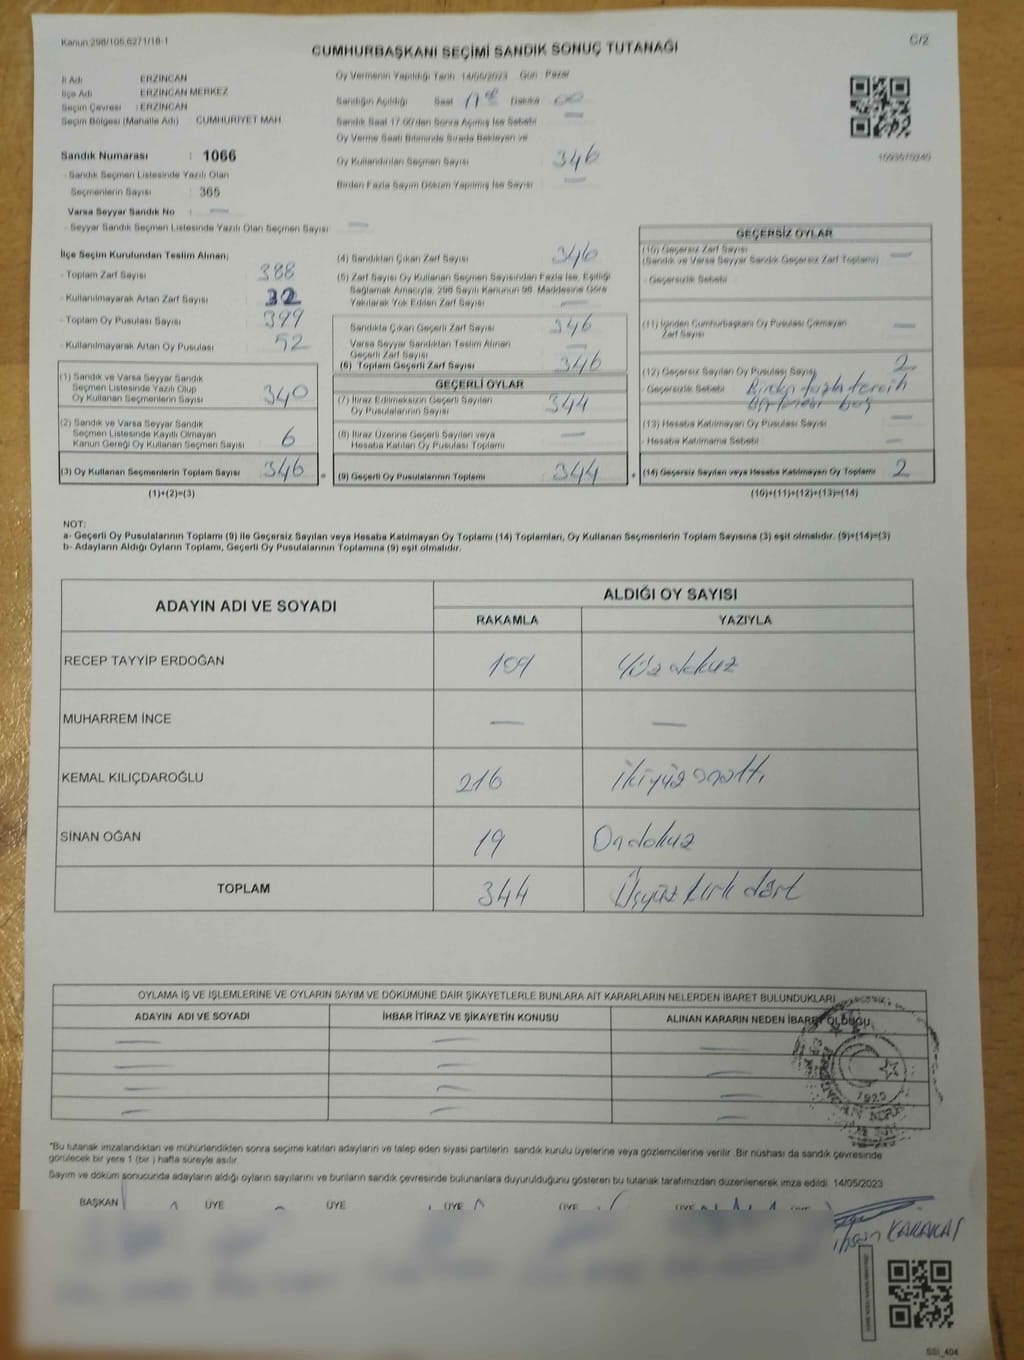 Kanun:298/105,6271/18-1
C/2
CUMHURBAŞKANI SEÇİMİ SANDIK SONUÇ TUTANAĞI
İl Adı ERZİNCAN
İlçe Adı ERZİNCAN MERKEZ
Seçim Çevresi : ERZİNCAN
Seçim Bölgesi (Mahalle Adı) CUMHURİYET MAH.
Sandık Numarası : 1066
- Sandık Seçmen Listesinde Yazılı Olan
Seçmenlerin Sayısı : 365
Varsa Seyyar Sandık No : —
- Seyyar Sandık Seçmen Listesinde Yazılı Olan Seçmen Sayısı —
Oy Vermenin Yapıldığı Tarih 14/05/2023 Gün Pazar
Sandığın Açıldığı Saat 17 00 Dakika 00
Sandık Saat 17:00'den Sonra Açılmış İse Sebebi —
Oy Verme Saati Bitiminde Sırada Bekleyen ve
Oy Kullandırılan Seçmen Sayısı 346
Birden Fazla Sayım Döküm Yapılmış İse Sayısı —
İlçe Seçim Kurulundan Teslim Alınan;
- Toplam Zarf Sayısı 388
- Kullanılmayarak Artan Zarf Sayısı 32
- Toplam Oy Pusulası Sayısı 399
- Kullanılmayarak Artan Oy Pusulası 52
(1) Sandık ve Varsa Seyyar Sandık
Seçmen Listesinde Yazılı Olup
Oy Kullanan Seçmenlerin Sayısı 340
(2) Sandık ve Varsa Seyyar Sandık
Seçmen Listesinde Kayıtlı Olmayan
Kanun Gereği Oy Kullanan Seçmen Sayısı 6
(3) Oy Kullanan Seçmenlerin Toplam Sayısı 346 =
(1)+(2)=(3)
(4) Sandıktan Çıkan Zarf Sayısı 346
(5) Zarf Sayısı Oy Kullanan Seçmen Sayısından Fazla İse, Eşitliği
Sağlamak Amacıyla, 298 Sayılı Kanunun 98. Maddesine Göre
Yakılarak Yok Edilen Zarf Sayısı —
Sandıkta Çıkan Geçerli Zarf Sayısı 346
Varsa Seyyar Sandıktan Teslim Alınan
Geçerli Zarf Sayısı —
(6) Toplam Geçerli Zarf Sayısı 346
GEÇERLİ OYLAR
(7) İtiraz Edilmeksizin Geçerli Sayılan
Oy Pusulasının Sayısı 344
(8) İtiraz Üzerine Geçerli Sayılan veya
Hesaba Katılan Oy Pusulası Toplamı —
(9) Geçerli Oy Pusulalarının Toplamı 344 +
GEÇERSİZ OYLAR
(10) Geçersiz Zarf Sayısı
(Sandık ve Varsa Seyyar Sandık Geçersiz Zarf Toplamı) —
- Geçersizlik Sebebi
(11) İçinden Cumhurbaşkanı Oy Pusulası Çıkmayan
Zarf Sayısı —
(12) Geçersiz Sayılan Oy Pusulası Sayısı 2
- Geçersizlik Sebebi Birden fazla tercih
boş
(13) Hesaba Katılmayan Oy Pusulası Sayısı —
- Hesaba Katılmama Sebebi —
(14) Geçersiz Sayılan veya Hesaba Katılmayan Oy Toplamı 2
(10)+(11)+(12)+(13)=(14)
NOT:
a- Geçerli Oy Pusulalarının Toplamı (9) ile Geçersiz Sayılan veya Hesaba Katılmayan Oy Toplamı (14) Toplamları, Oy Kullanan Seçmenlerin Toplam Sayısına (3) eşit olmalıdır. (9)+(14)=(3)
b- Adayların Aldığı Oyların Toplamı, Geçerli Oy Pusulalarının Toplamına (9) eşit olmalıdır.
ADAYIN ADI VE SOYADI ALDIĞI OY SAYISI
RAKAMLA YAZIYLA
RECEP TAYYİP ERDOĞAN 109 Yüz dokuz
MUHARREM İNCE — —
KEMAL KILIÇDAROĞLU 216 İkiyüz onaltı
SİNAN OĞAN 19 Ondokuz
TOPLAM 344 Üçyüz kırk dört
OYLAMA İŞ VE İŞLEMLERİNE VE OYLARIN SAYIM VE DÖKÜMÜNE DAİR ŞİKAYETLERLE BUNLARA AİT KARARLARIN NELERDEN İBARET BULUNDUKLARI
ADAYIN ADI VE SOYADI İHBAR İTİRAZ VE ŞİKAYETİN KONUSU ALINAN KARARIN NEDEN İBARET OLDUĞU
— — —
— — —
— — —
— — —
*Bu tutanak imzalandıktan ve mühürlendikten sonra seçime katılan adayların ve talep eden siyasi partilerin sandık kurulu üyelerine veya gözlemcilerine verilir. Bir nüshası da sandık çevresinde
görülecek bir yere 1 (bir) hafta süreyle asılır.
Sayım ve döküm sonucunda adayların aldığı oyların sayılarını ve bunların sandık çevresinde bulunanlara duyurulduğunu gösteren bu tutanak tarafımızdan düzenlenerek imza edildi. 14/05/2023
BAŞKAN ÜYE ÜYE ÜYE ÜYE ÜYE
İhsan KARAKAŞ
SSİ_404